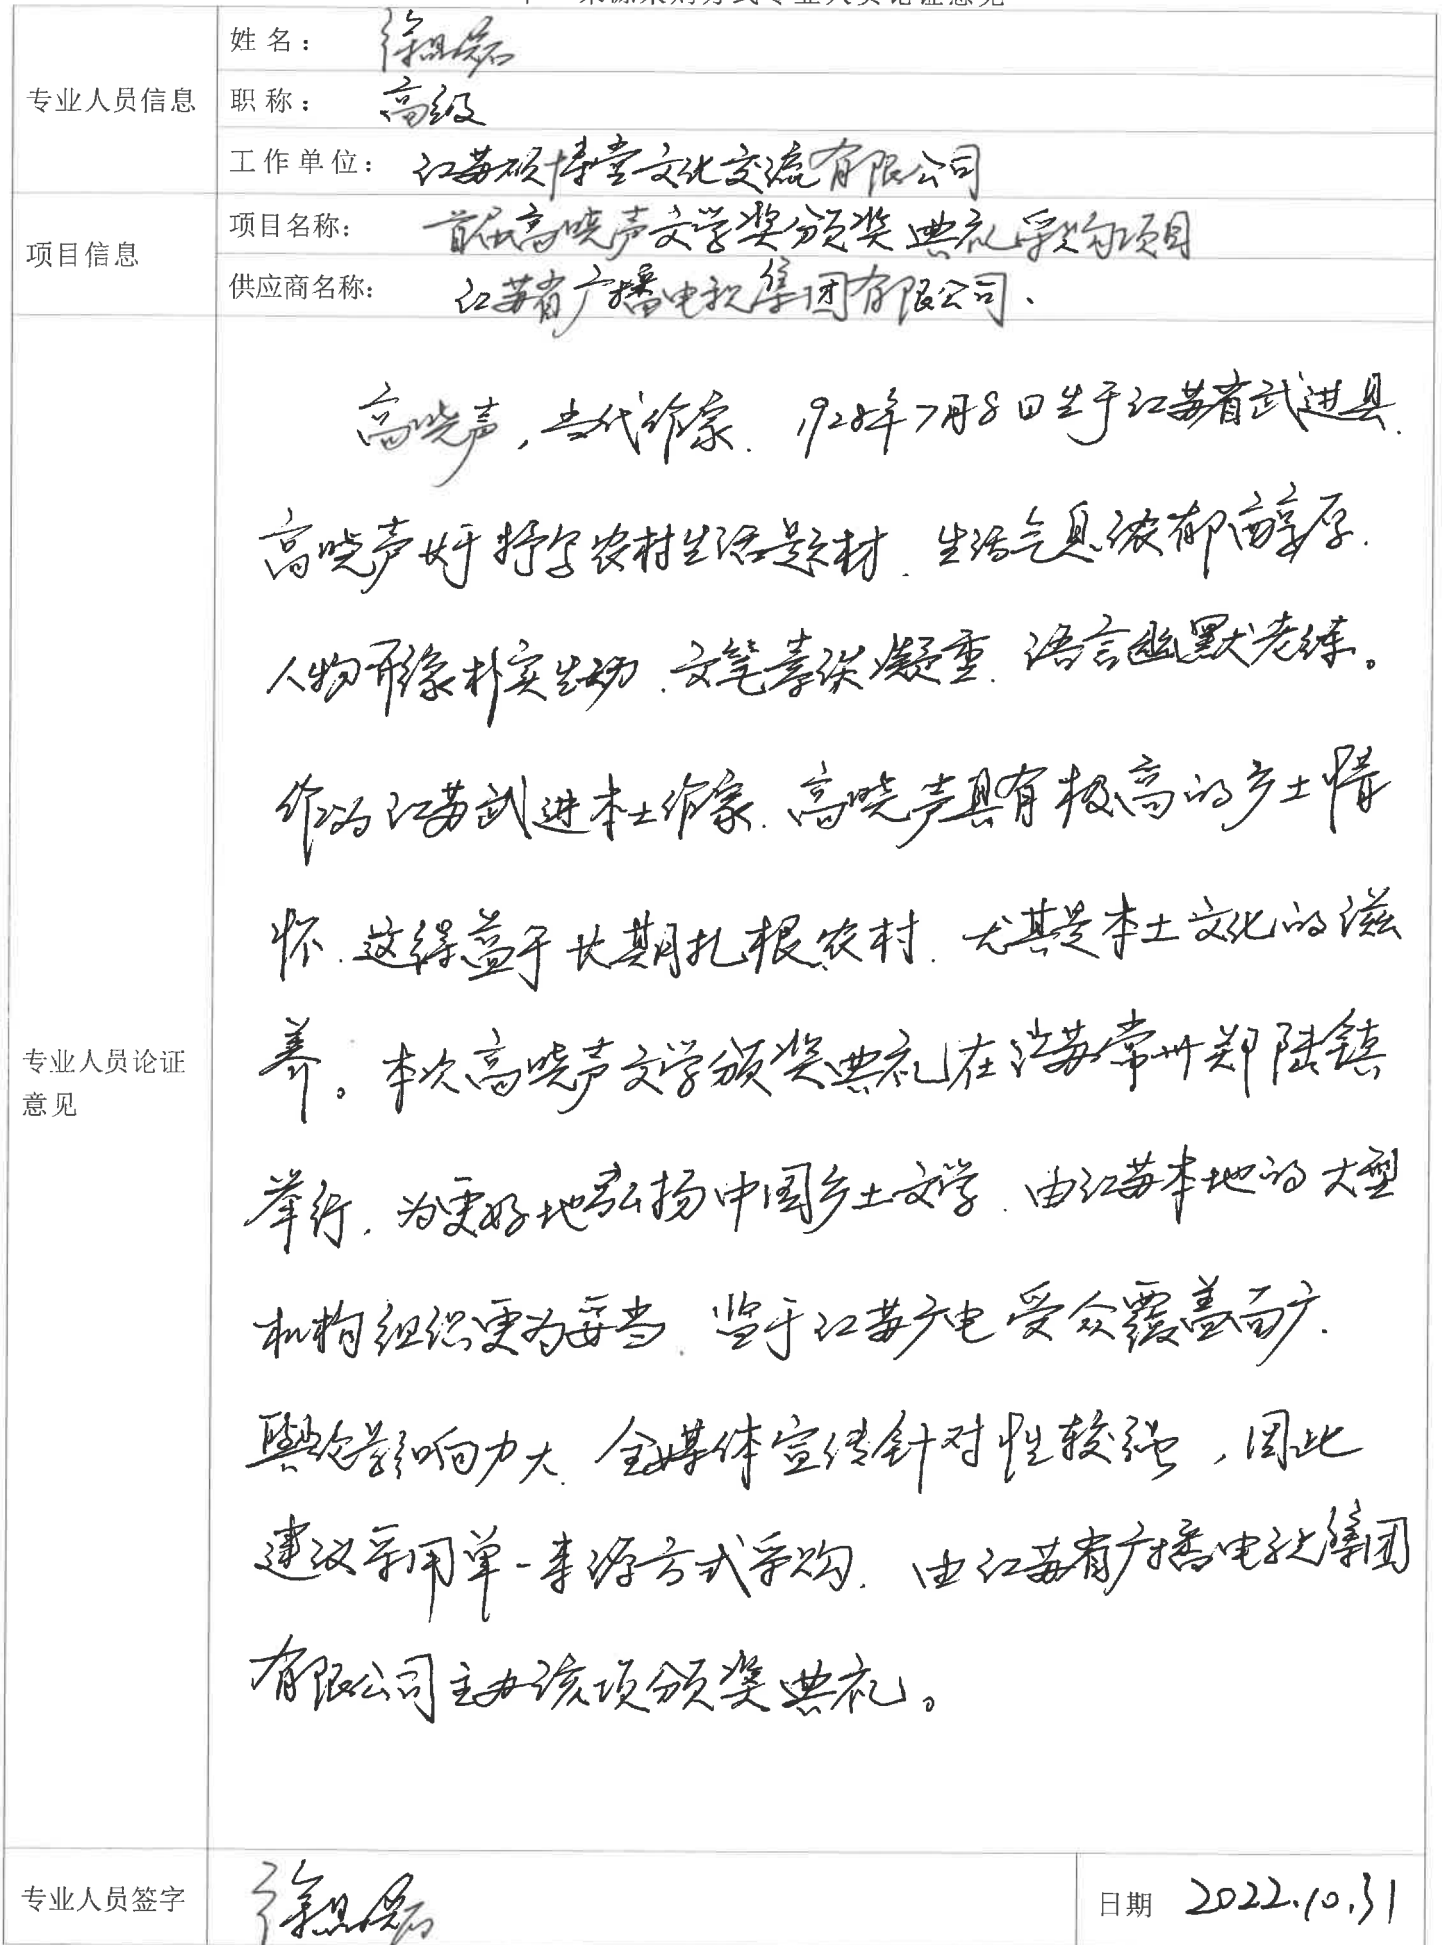 单一来源采购方式专业人员论证意见
专业人员信息
姓名：徐
职称：高级
工作单位：江苏硕博堂文化交流有限公司
项目信息
项目名称：首届高晓声文学奖颁奖典礼采购项目
供应商名称：江苏省广播电视集团有限公司、
专业人员论证
意见
高晓声，当代作家．1928年7月8日生于江苏省武进县．
高晓声好于抒写农村生活题材．生活气息浓郁醇厚．
人物形象朴实生动．文笔凝重．语言幽默老练。
作为江苏武进本土作家．高晓声具有极高的乡土情
怀．这得益于长期扎根农村．尤其是本土文化的滋
养。本次高晓声文学颁奖典礼在江苏常州郑陆镇
举行．为更好地弘扬中国乡土文学．由江苏本地的大型
机构组织更为妥当．鉴于江苏广电受众覆盖面广．
舆论影响力大．全媒体宣传针对性较强，因此
建议采用单一来源方式采购．由江苏省广播电视集团
有限公司主办该项颁奖典礼。
专业人员签字
徐
日期 2022.10.31